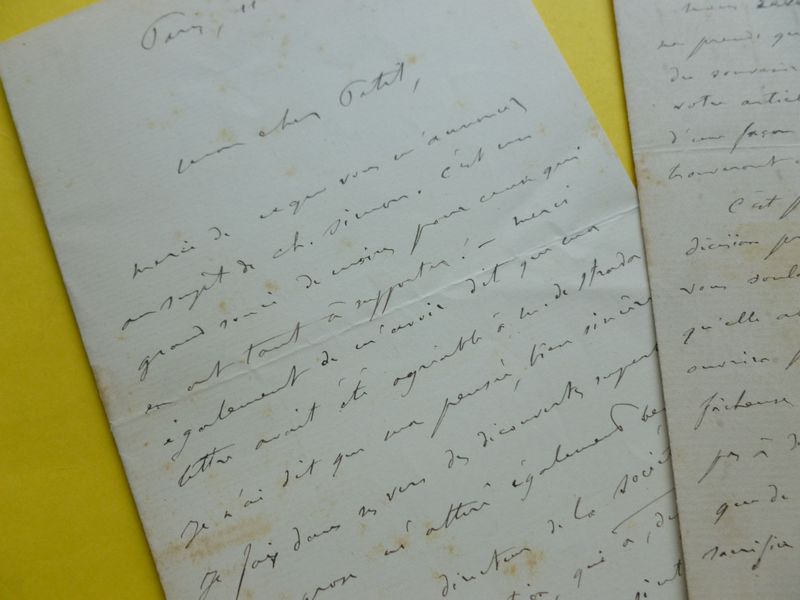 Paris, 11
mon cher Petit,
merci de ce que vous m'annoncez
au sujet de Ch. Simon. C'est un
grand souci de moins pour ceux qui
en ont tant à supporter! – merci
également de m'avoir dit que ma
lettre avait été agréable à M. de Strada
Je n'ai dit que ma pensée, bien sincère
Je fais dans ses vers des découvertes
m'attire également
directeur de la Société
qui a, du
nous
ne prends
du souvenir
votre
d'une façon
trouveront
C'est
décision
vous
qu'elle
ouvrira
fâcheuse
pas à
que de
sacrifice